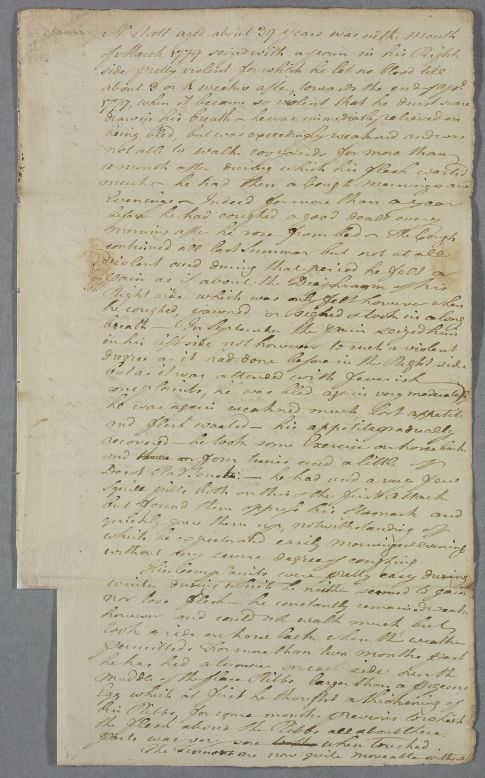 Mr Nott aged about 39 years was in the Month
of March 1779 seized with a pain in his Right
side pretty violent for which he let no blood till
about 3 or 4 weeks after, towards the end of April
1779, when it became so violent that he durst scarce
draw in his breath - he was immediately relieved on
being bled, but was exceedingly weakened and was
not able to walk for more than
a month after during which his flesh wasted
much - he had then a Cough mornings and
Evenings - Indeed for more than a year
before he had coughed a good deal every
morning after he rose from bed - The Cough
continued all last Summer but not at all
violent and during that period he felt a
pain as if about the Diaphragm of his
Right side which was only felt however when
he coughed, yawned or sighed or took in a long
breath - In September the pain seized him
in his left side not however to such a violent
degree as it had done before in the Right side
but as it was attended with feverish
complaints, he was bled again very moderately
he was again weakened much lost appetite
and flesh wasted - his appetite gradually
recovered - he took some Exercise on horseback
and three or four times used a little of
- he had used a very few
Squill pills both on this & the first attack
but found them oppress his Stomach and
quickly gave them up, notwithstanding of
which he expectorated easily morning & evening
without any severe degree of coughing
His Complaints were pretty easy during
winter during which he neither seemed to gain
nor lose flesh - he constantly remained weak
however and could not walk much but
took a ride on horse back when the weather
permitted. For more than two months past
he has had a tumour on each side near the
middle of the false Ribbs larger than a pigeons
Egg which at first he thought a thickening of
his Ribbs, for some months previous to which
the flesh above the Ribbs all about these
parts was very sore when touched.
The tumours are now quite moveable with the